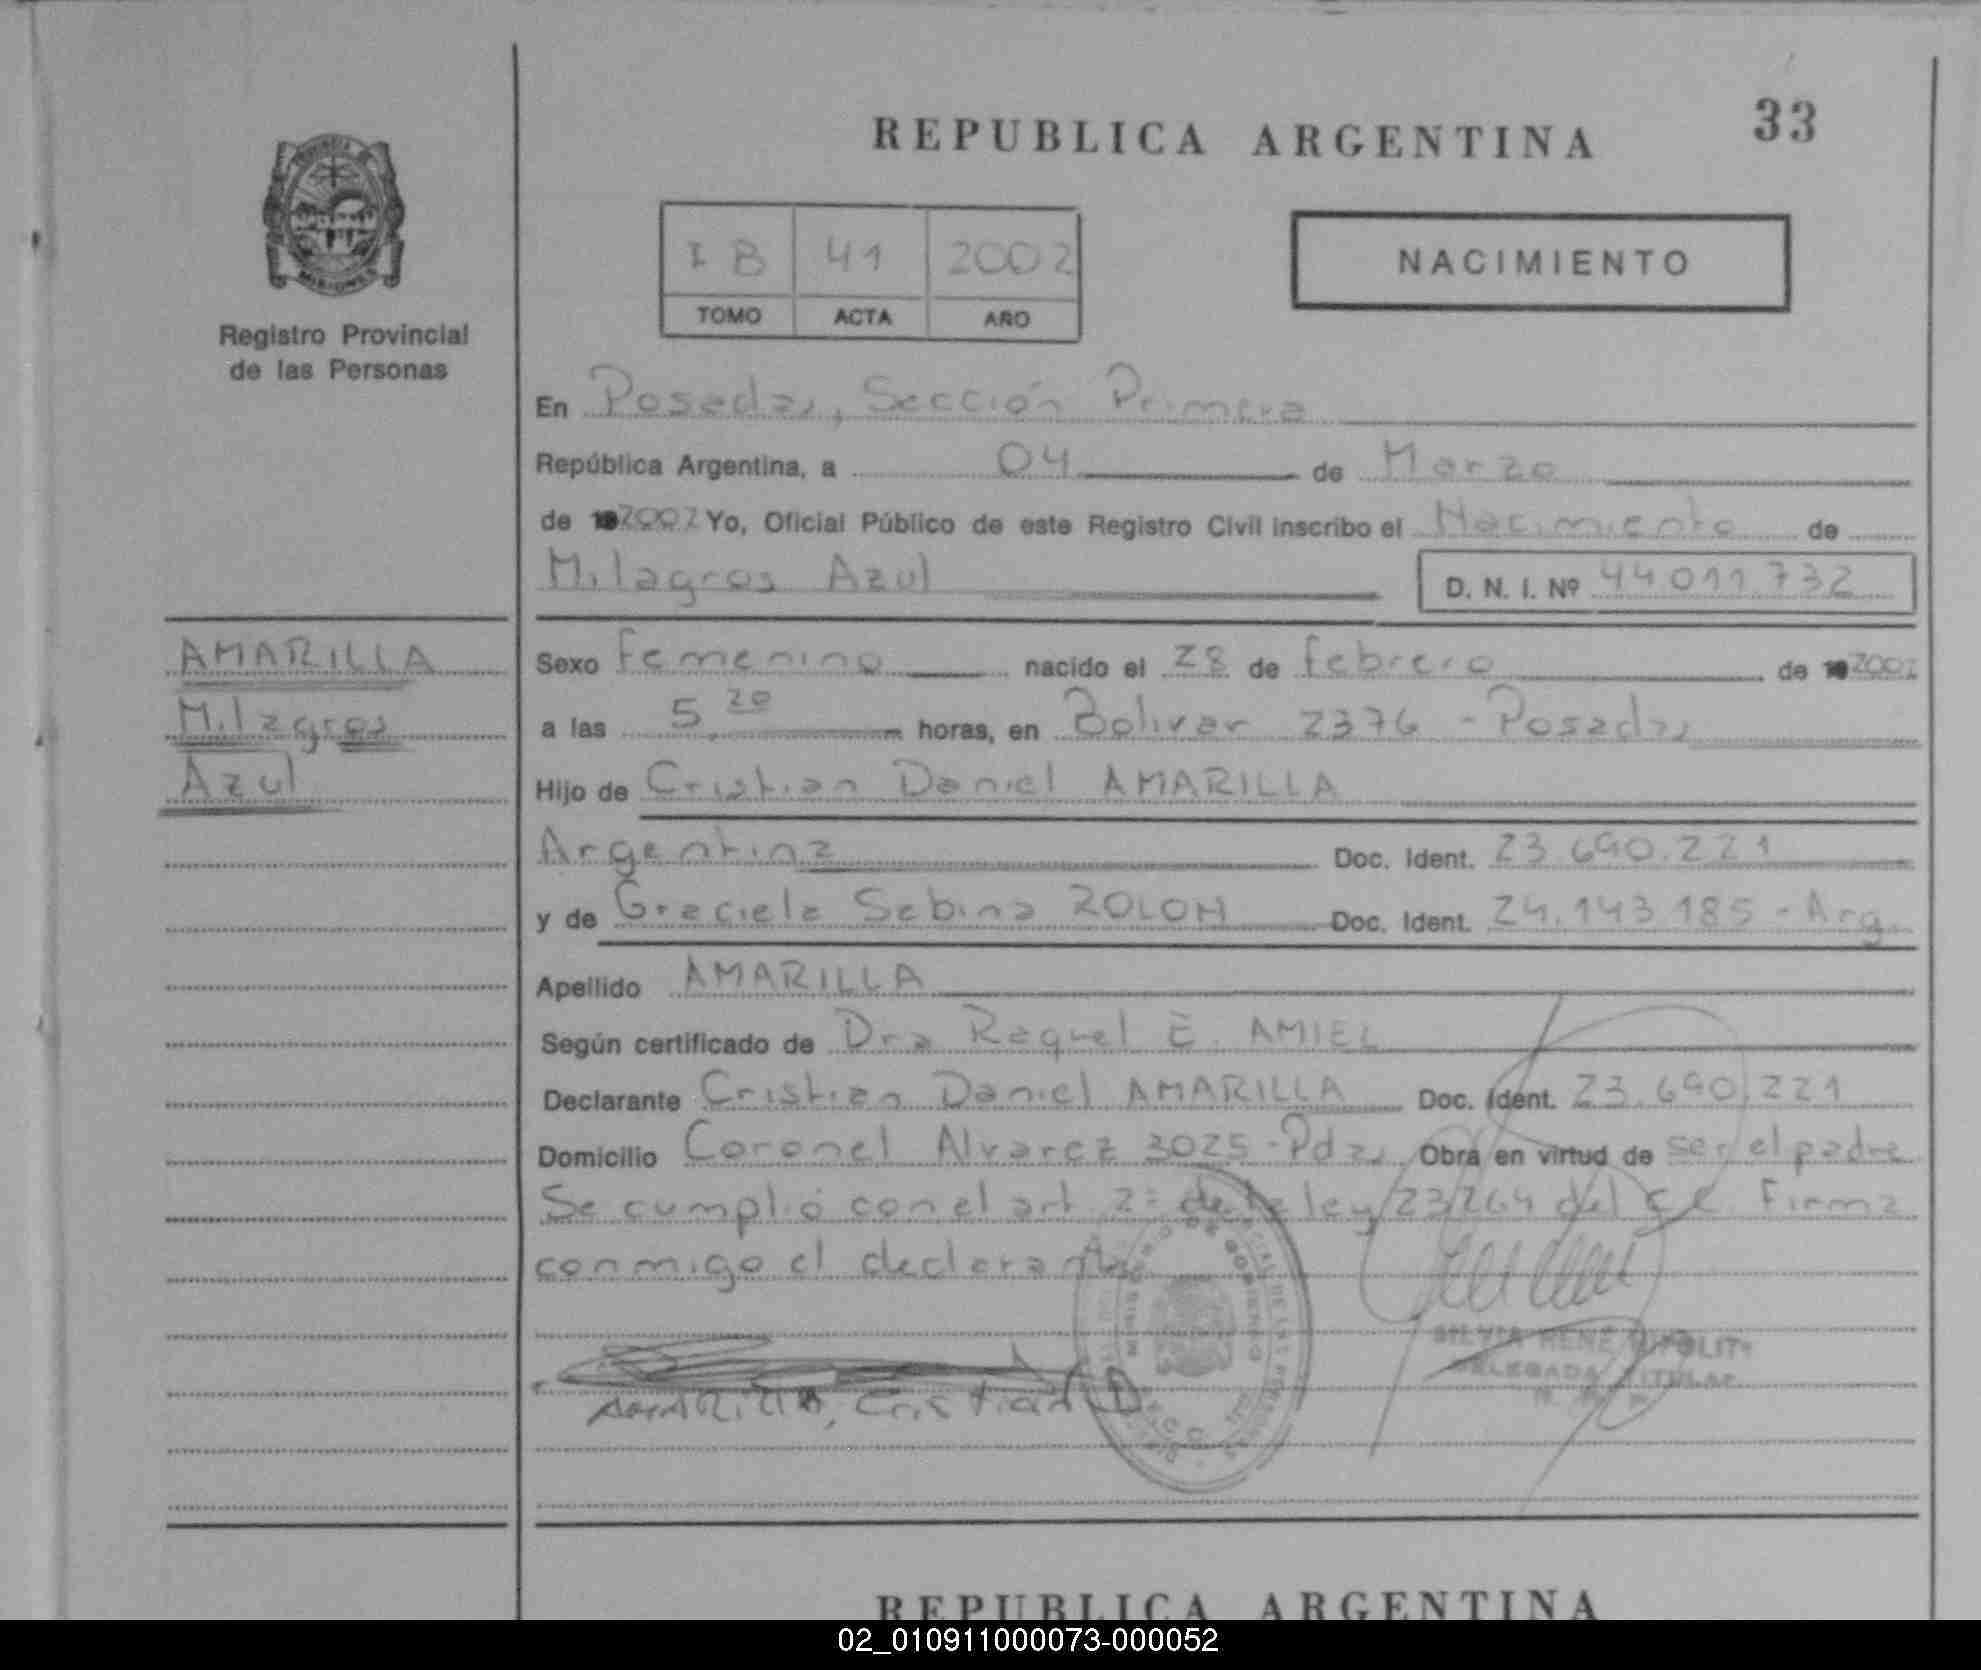 REPUBLICA ARGENTINA
33
I B 41 2002
TOMO ACTA AÑO
NACIMIENTO
Registro Provincial
de las Personas
En Posadas, Sección Primera
República Argentina, a 04 de Marzo
de 2002 Yo, Oficial Público de este Registro Civil inscribo el Nacimiento de
Milagros Azul D. N. I. Nº 44 011.732
AMARILLA
Milagros
Azul
Sexo Femenino nacido el 28 de febrero de 2002
a las 5,20 horas, en Bolivar 2376 - Posadas
Hijo de Cristian Daniel AMARILLA
Argentina Doc. Ident. 23.690.221
y de Graciela Sabina ZOLON Doc. Ident. 24.143.185 - Arg.
Apellido AMARILLA
Según certificado de Dra Raquel E. AMIEL
Declarante Cristian Daniel AMARILLA Doc. Ident. 23.690.221
Domicilio Coronel Alvarez 3025 - Pdas Obra en virtud de ser el padre
Se cumplió con el art 2º de la ley 23264 del C.C. Firma
conmigo el declarante
AMARILLA, Cristian D.
SILVIA RENE
DELEGADA TITULAR
REPUBLICA ARGENTINA
02_010911000073-000052